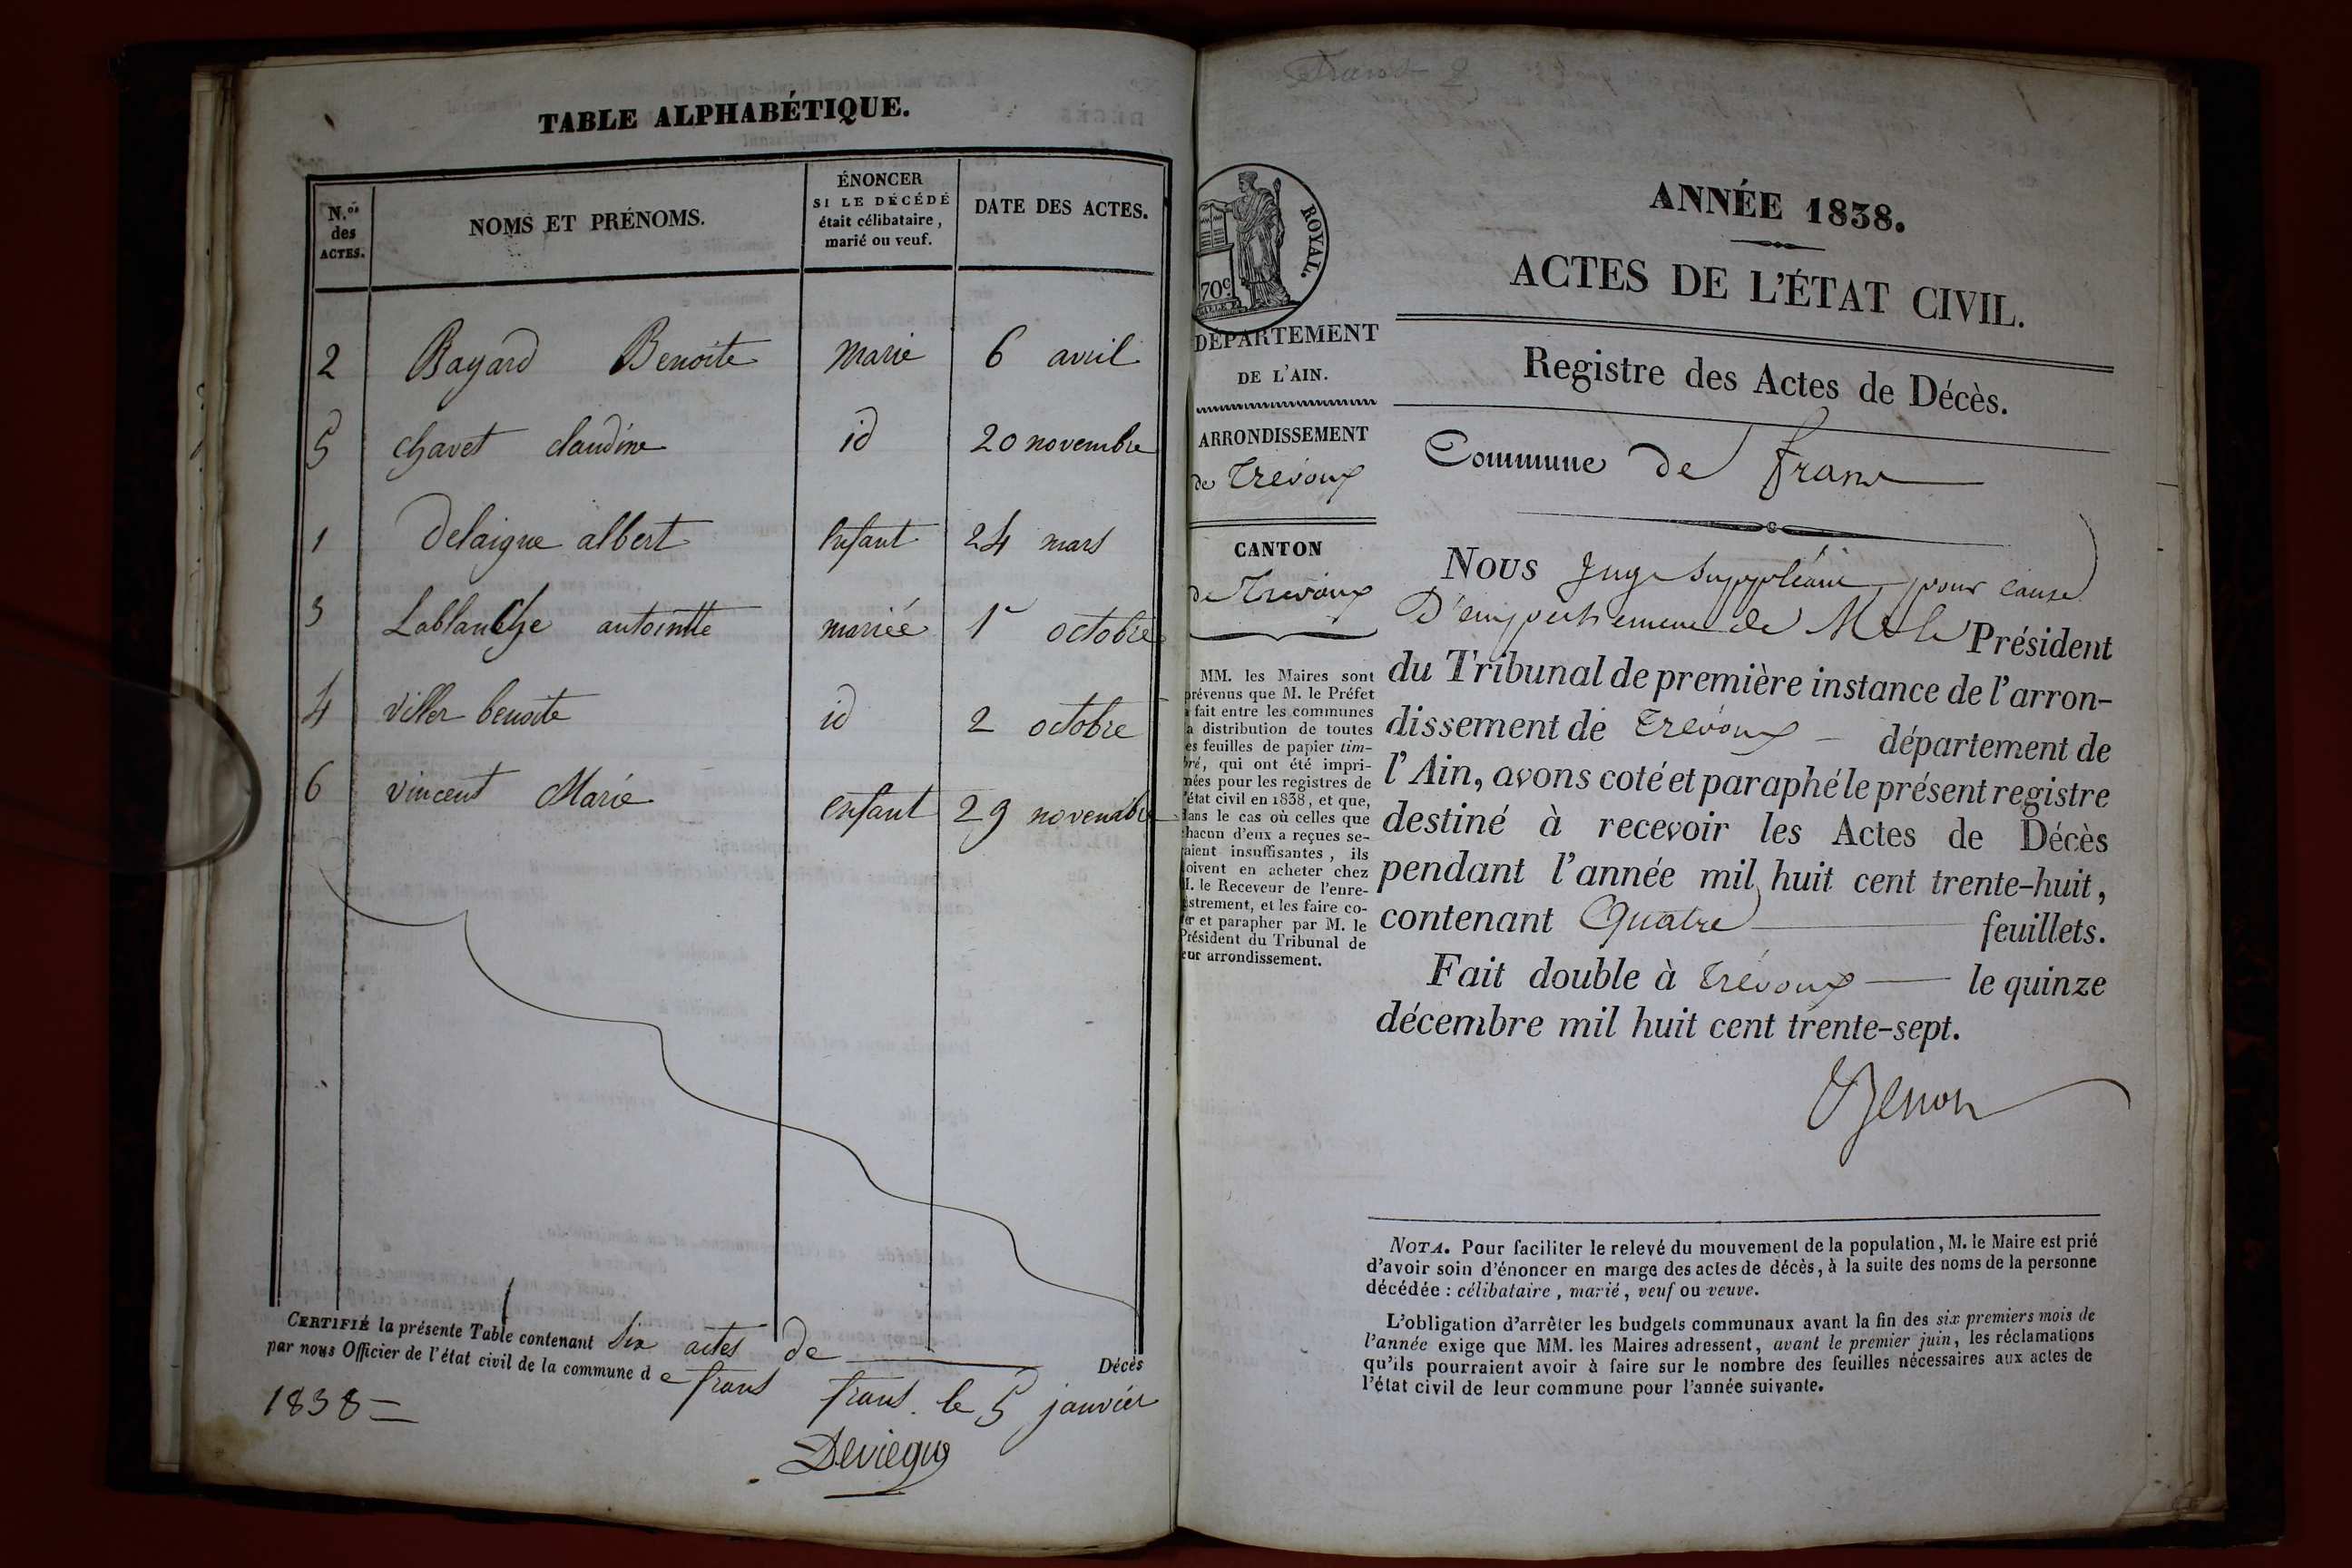 TABLE ALPHABÉTIQUE.
N.os des ACTES.
NOMS ET PRÉNOMS.
ÉNONCER
SI LE DÉCÉDÉ
était célibataire,
marié ou veuf.
DATE DES ACTES.
2 Bayard Benoite marie 6 avril
5 chavet claudine id 20 novembre
1 Delaigue albert Enfant 24 mars
3 Lablanche antointte mariée 1r octobre
4 viller benoite id 2 octobre
6 vincent Marie enfant 29 novembre
CERTIFIÉ la présente Table contenant Six actes de Décès
par nous Officier de l'état civil de la commune de frans frans. le 5 janvier
1838
Deviegue
Frans 2
ROYAL.
70c
DÉPARTEMENT
DE L'AIN.
ARRONDISSEMENT
de Trévoux
CANTON
de Trévoux
MM. les Maires sont
prévenus que M. le Préfet
a fait entre les communes
la distribution de toutes
les feuilles de papier tim-
bré, qui ont été impri-
mées pour les registres de
l'état civil en 1838, et que,
dans le cas où celles que
chacun d'eux a reçues se-
raient insuffisantes, ils
doivent en acheter chez
M. le Receveur de l'enre-
gistrement, et les faire co-
ter et parapher par M. le
Président du Tribunal de
leur arrondissement.
ANNÉE 1838.
ACTES DE L'ÉTAT CIVIL.
Registre des Actes de Décès.
Commune de frans
Nous Juge Suppléant, pour cause
D'empechement de Mr le Président
du Tribunal de première instance de l'arron-
dissement de Trévoux département de
l'Ain, avons coté et paraphé le présent registre
destiné à recevoir les Actes de Décès
pendant l'année mil huit cent trente-huit,
contenant Quatre feuillets.
Fait double à Trévoux le quinze
décembre mil huit cent trente-sept.
NOTA. Pour faciliter le relevé du mouvement de la population, M. le Maire est prié
d'avoir soin d'énoncer en marge des actes de décès, à la suite des noms de la personne
décédée : célibataire, marié, veuf ou veuve.
L'obligation d'arrêter les budgets communaux avant la fin des six premiers mois de
l'année exige que MM. les Maires adressent, avant le premier juin, les réclamations
qu'ils pourraient avoir à faire sur le nombre des feuilles nécessaires aux actes de
l'état civil de leur commune pour l'année suivante.